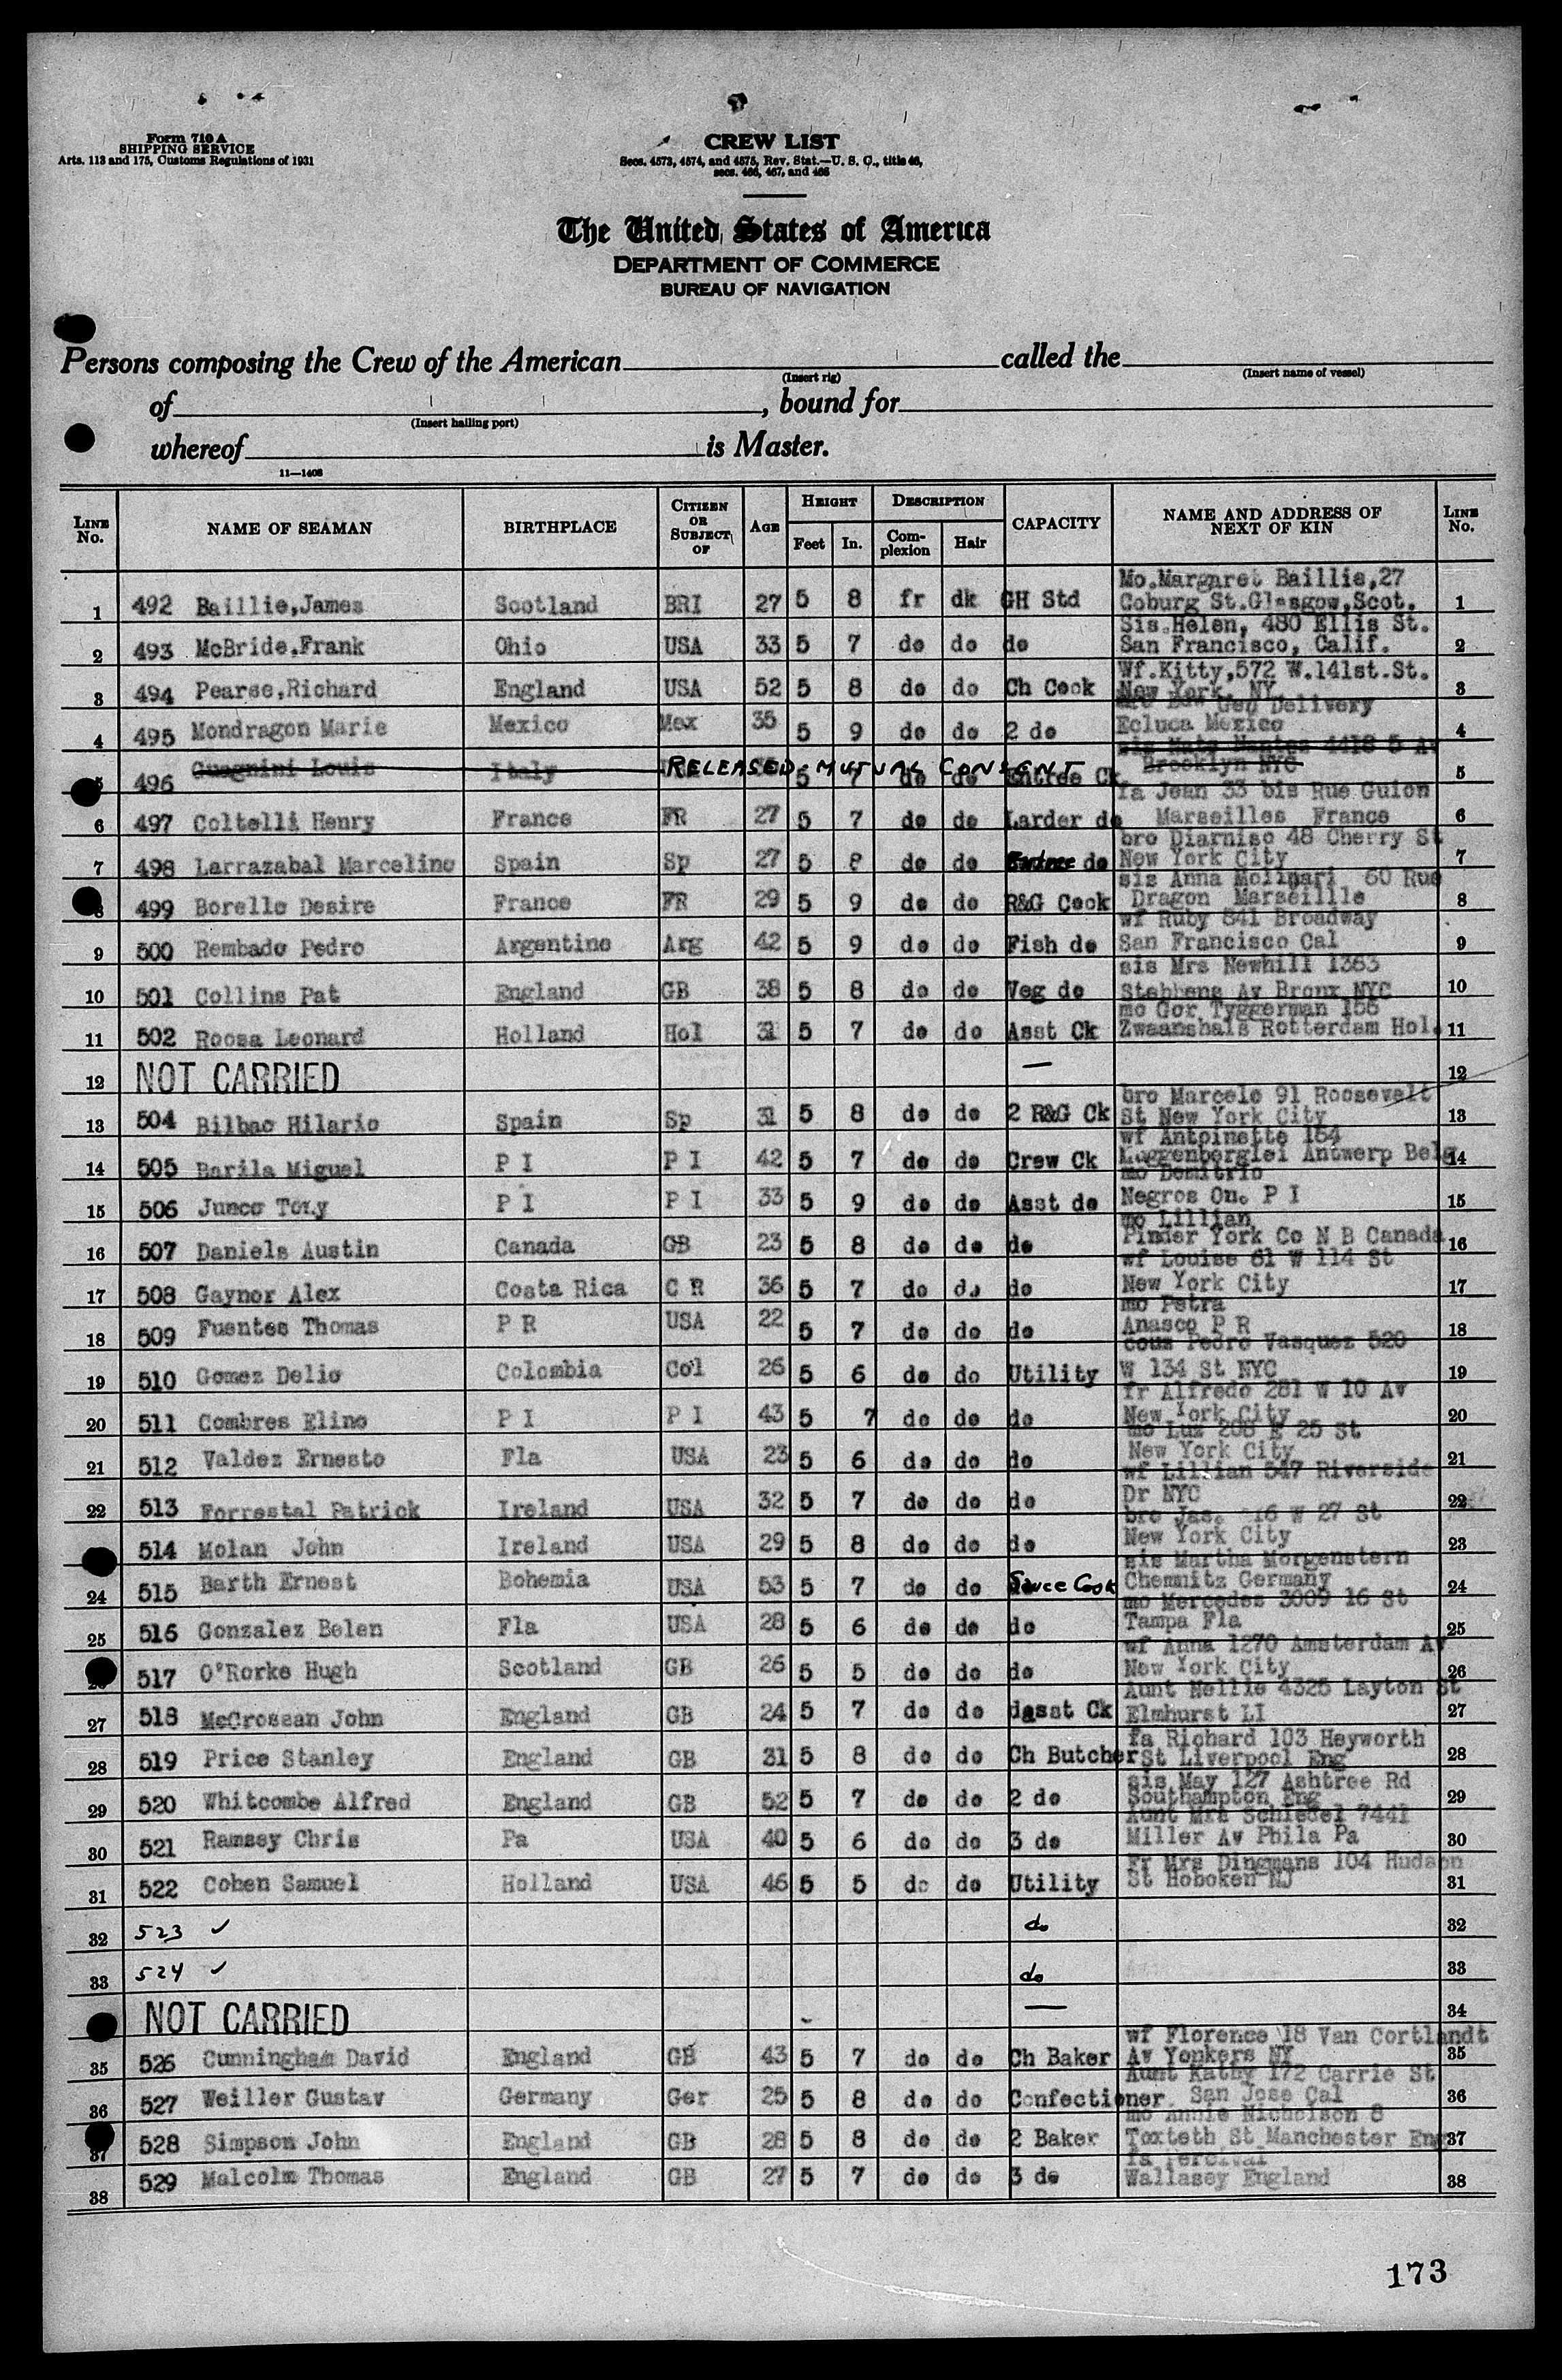 Form 710 A
SHIPPING SERVICE
Arts. 113 and 175, Customs Regulations of 1931
CREW LIST
Secs. 4573, 4574, and 4575, Rev. Stat.—U. S. C., title 46,
secs. 466, 467, and 468
The United States of America
DEPARTMENT OF COMMERCE
BUREAU OF NAVIGATION
Persons composing the Crew of the American called the
(Insert rig) (Insert name of vessel)
of , bound for
(Insert hailing port)
whereof is Master.
11—1408
LINE No. NAME OF SEAMAN BIRTHPLACE CITIZEN OR SUBJECT OF AGE HEIGHT Feet In. DESCRIPTION Complexion Hair CAPACITY NAME AND ADDRESS OF NEXT OF KIN LINE No.
1 492 Baillie,James Scotland BRI 27 5 8 fr dk GH Std Mo.Margaret Baillie,27 Coburg St.Glasgow,Scot. 1
2 493 McBride.Frank Ohio USA 33 5 7 do do do Sis.Helen, 480 Ellis St. San Francisco, Calif. 2
3 494 Pearse,Richard England USA 52 5 8 do do Ch Cook Wf.Kitty,572 W.141st.St. New York, NY 3
4 495 Mondragon Marie Mexico Mex 35 5 9 do do 2 do Gen Delivery Ecluca Mexico 4
496 Guagnini Louis Italy RELEASED - MUTUAL CONSENT 5 7 do do Entree Ck sis Kate Nantes 4418 5 Av Brooklyn NYC 5
6 497 Coltelli Henry France FR 27 5 7 do do Larder do fa Jean 33 bis Rue Guion Marseilles France 6
7 498 Larrazabal Marcelino Spain Sp 27 5 8 do do Entree do bro Diarniso 48 Cherry St New York City 7
8 499 Borello Desire France FR 29 5 9 do do R&G Cook sis Anna Molinari 60 Rue Dragon Marseillle 8
9 500 Rembado Pedro Argentine Arg 42 5 9 do do Fish do wf Ruby 841 Broadway San Francisco Cal 9
10 501 Collins Pat England GB 38 5 8 do do Veg do sis Mrs Newhill 1363 Stebbens Av Bronx NYC 10
11 502 Roosa Leonard Holland Hol 31 5 7 do do Asst Ck mo Gor Tyggerman 156 Zwaanshals Rotterdam Hol. 11
12 NOT CARRIED — 12
13 504 Bilbao Hilario Spain Sp 31 5 8 do do 2 R&G Ck bro Marcelo 91 Roosevelt St New York City 13
14 505 Barila Miguel P I P I 42 5 7 do do Crew Ck wf Antoinette 154 Antwerp Belg 14
15 506 Junco Tony P I P I 33 5 9 do do Asst do mo Demitrio Negros Oc. P I 15
16 507 Daniels Austin Canada GB 23 5 8 do do do mo Lillian Pinder York Co N B Canada 16
17 508 Gaynor Alex Costa Rica C R 36 5 7 do do do wf Louise 61 W 114 St New York City 17
18 509 Fuentes Thomas P R USA 22 5 7 do do do mo Petra Anasco P R 18
19 510 Gomez Delio Colombia Col 26 5 6 do do Utility cous Pedro Vasquez 520 W 134 St NYC 19
20 511 Combres Elino P I P I 43 5 7 do do do fr Alfredo 281 W 10 Av New York City 20
21 512 Valdez Ernesto Fla USA 23 5 6 do do do mo Luz 208 E 25 St New York City 21
22 513 Forrestal Patrick Ireland USA 32 5 7 do do do wf Lillian 547 Riverside Dr NYC 22
514 Molan John Ireland USA 29 5 8 do do do bro Jas. 16 W 27 St New York City 23
24 515 Barth Ernest Bohemia USA 53 5 7 do do Sauce Cook sis Martha Morgenstern Chemnitz Germany 24
25 516 Gonzalez Belen Fla USA 28 5 6 do do do mo Mercedes 3009 16 St Tampa Fla 25
26 517 O'Rorke Hugh Scotland GB 26 5 5 do do do wf Anna 1270 Amsterdam Av New York City 26
27 518 McCrossan John England GB 24 5 7 do do asst Ck Aunt Nellie 4325 Layton St Elmhurst LI 27
28 519 Price Stanley England GB 31 5 8 do do Ch Butcher fa Richard 103 Heyworth St Liverpool Eng 28
29 520 Whitcombe Alfred England GB 52 5 7 do do 2 do sis May 127 Ashtree Rd Southampton Eng 29
30 521 Ramsey Chris Pa USA 40 5 6 do do 3 do Aunt Mrs Schiedel 7441 Miller Av Phila Pa 30
31 522 Cohen Samuel Holland USA 46 5 5 do do Utility Fr Mrs Dingmans 104 Hudson St Hoboken NJ 31
32 523 ✓ do 32
33 524 ✓ do 33
NOT CARRIED — 34
35 526 Cunningham David England GB 43 5 7 do do Ch Baker wf Florence 18 Van Cortlandt Av Yonkers NY 35
36 527 Weiller Gustav Germany Ger 25 5 8 do do Confectioner Aunt Kathy 172 Carrie St San Jose Cal 36
37 528 Simpson John England GB 28 5 8 do do 2 Baker mo Annie Nicholson 8 Toxteth St Manchester Eng 37
38 529 Malcolm Thomas England GB 27 5 7 do do 3 do fa Percival Wallasey England 38
173